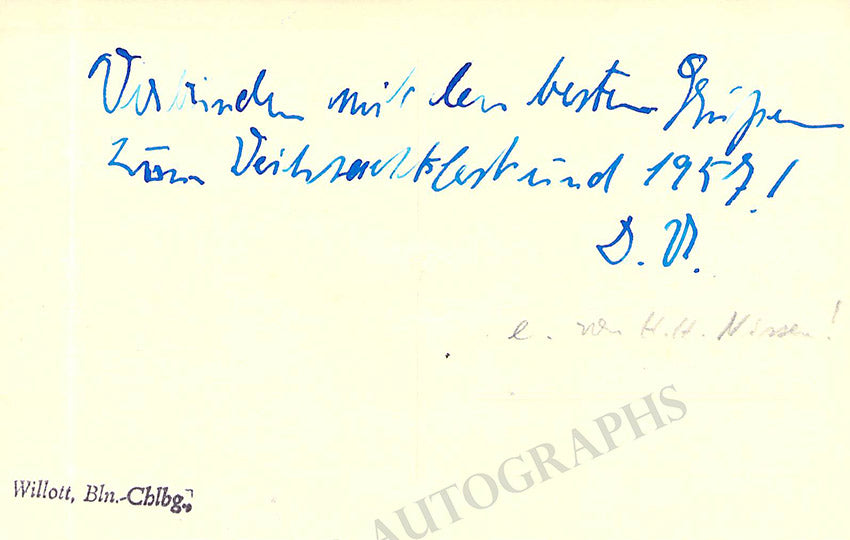 Verbunden mit den besten Grüßen
zum Weihnachtsfest und 1957!
D. V.
e. von H. H. Nissen!
AUTOGRAPHS
Willott, Bln.-Chlbg.